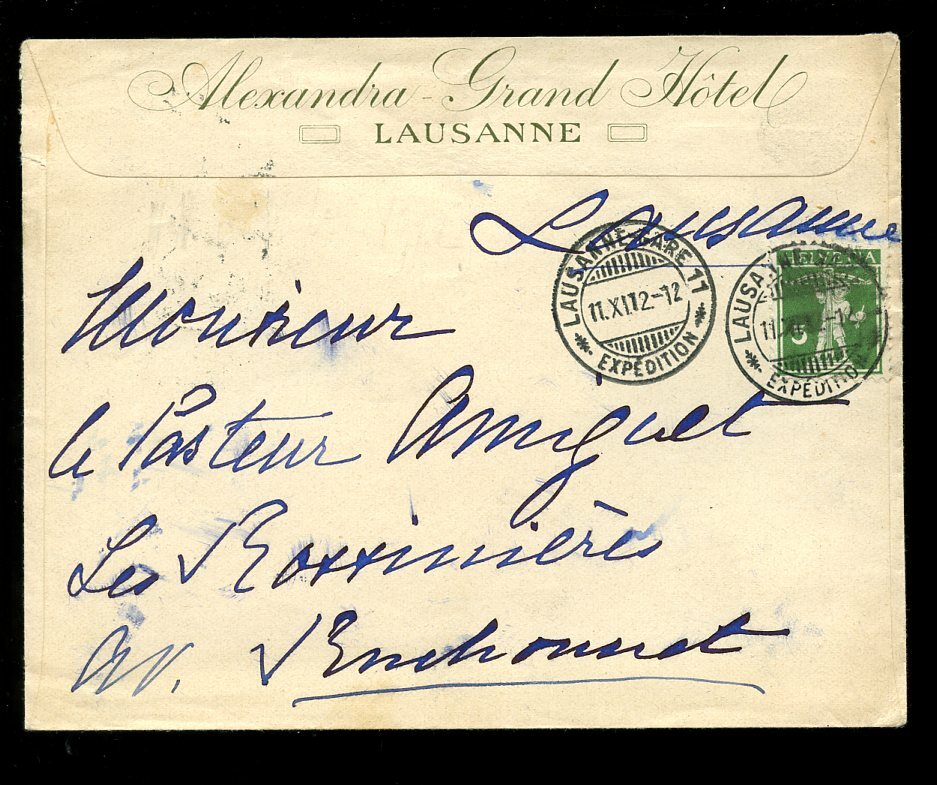 Alexandra-Grand Hôtel
LAUSANNE
Lausanne
LAUSANNE-GARE 11
11.XI.12-12
EXPÉDITION
HELVETIA
5
LAUSANNE
EXPÉDITION
Monsieur
le Pasteur Amiguet
Les Rossinières
av. Ruchonnet